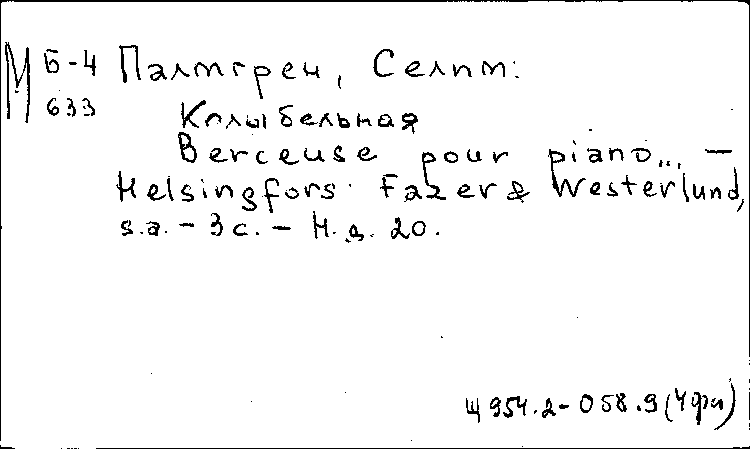 М Б-4 Палмгрен, Селим:
633
Колыбельная
Berceuse pour piano... —
Helsingfors: Fazer & Westerlund,
s.a. - 3 с. - Н.д. 20.
Щ 954.2-058.9(4фи)